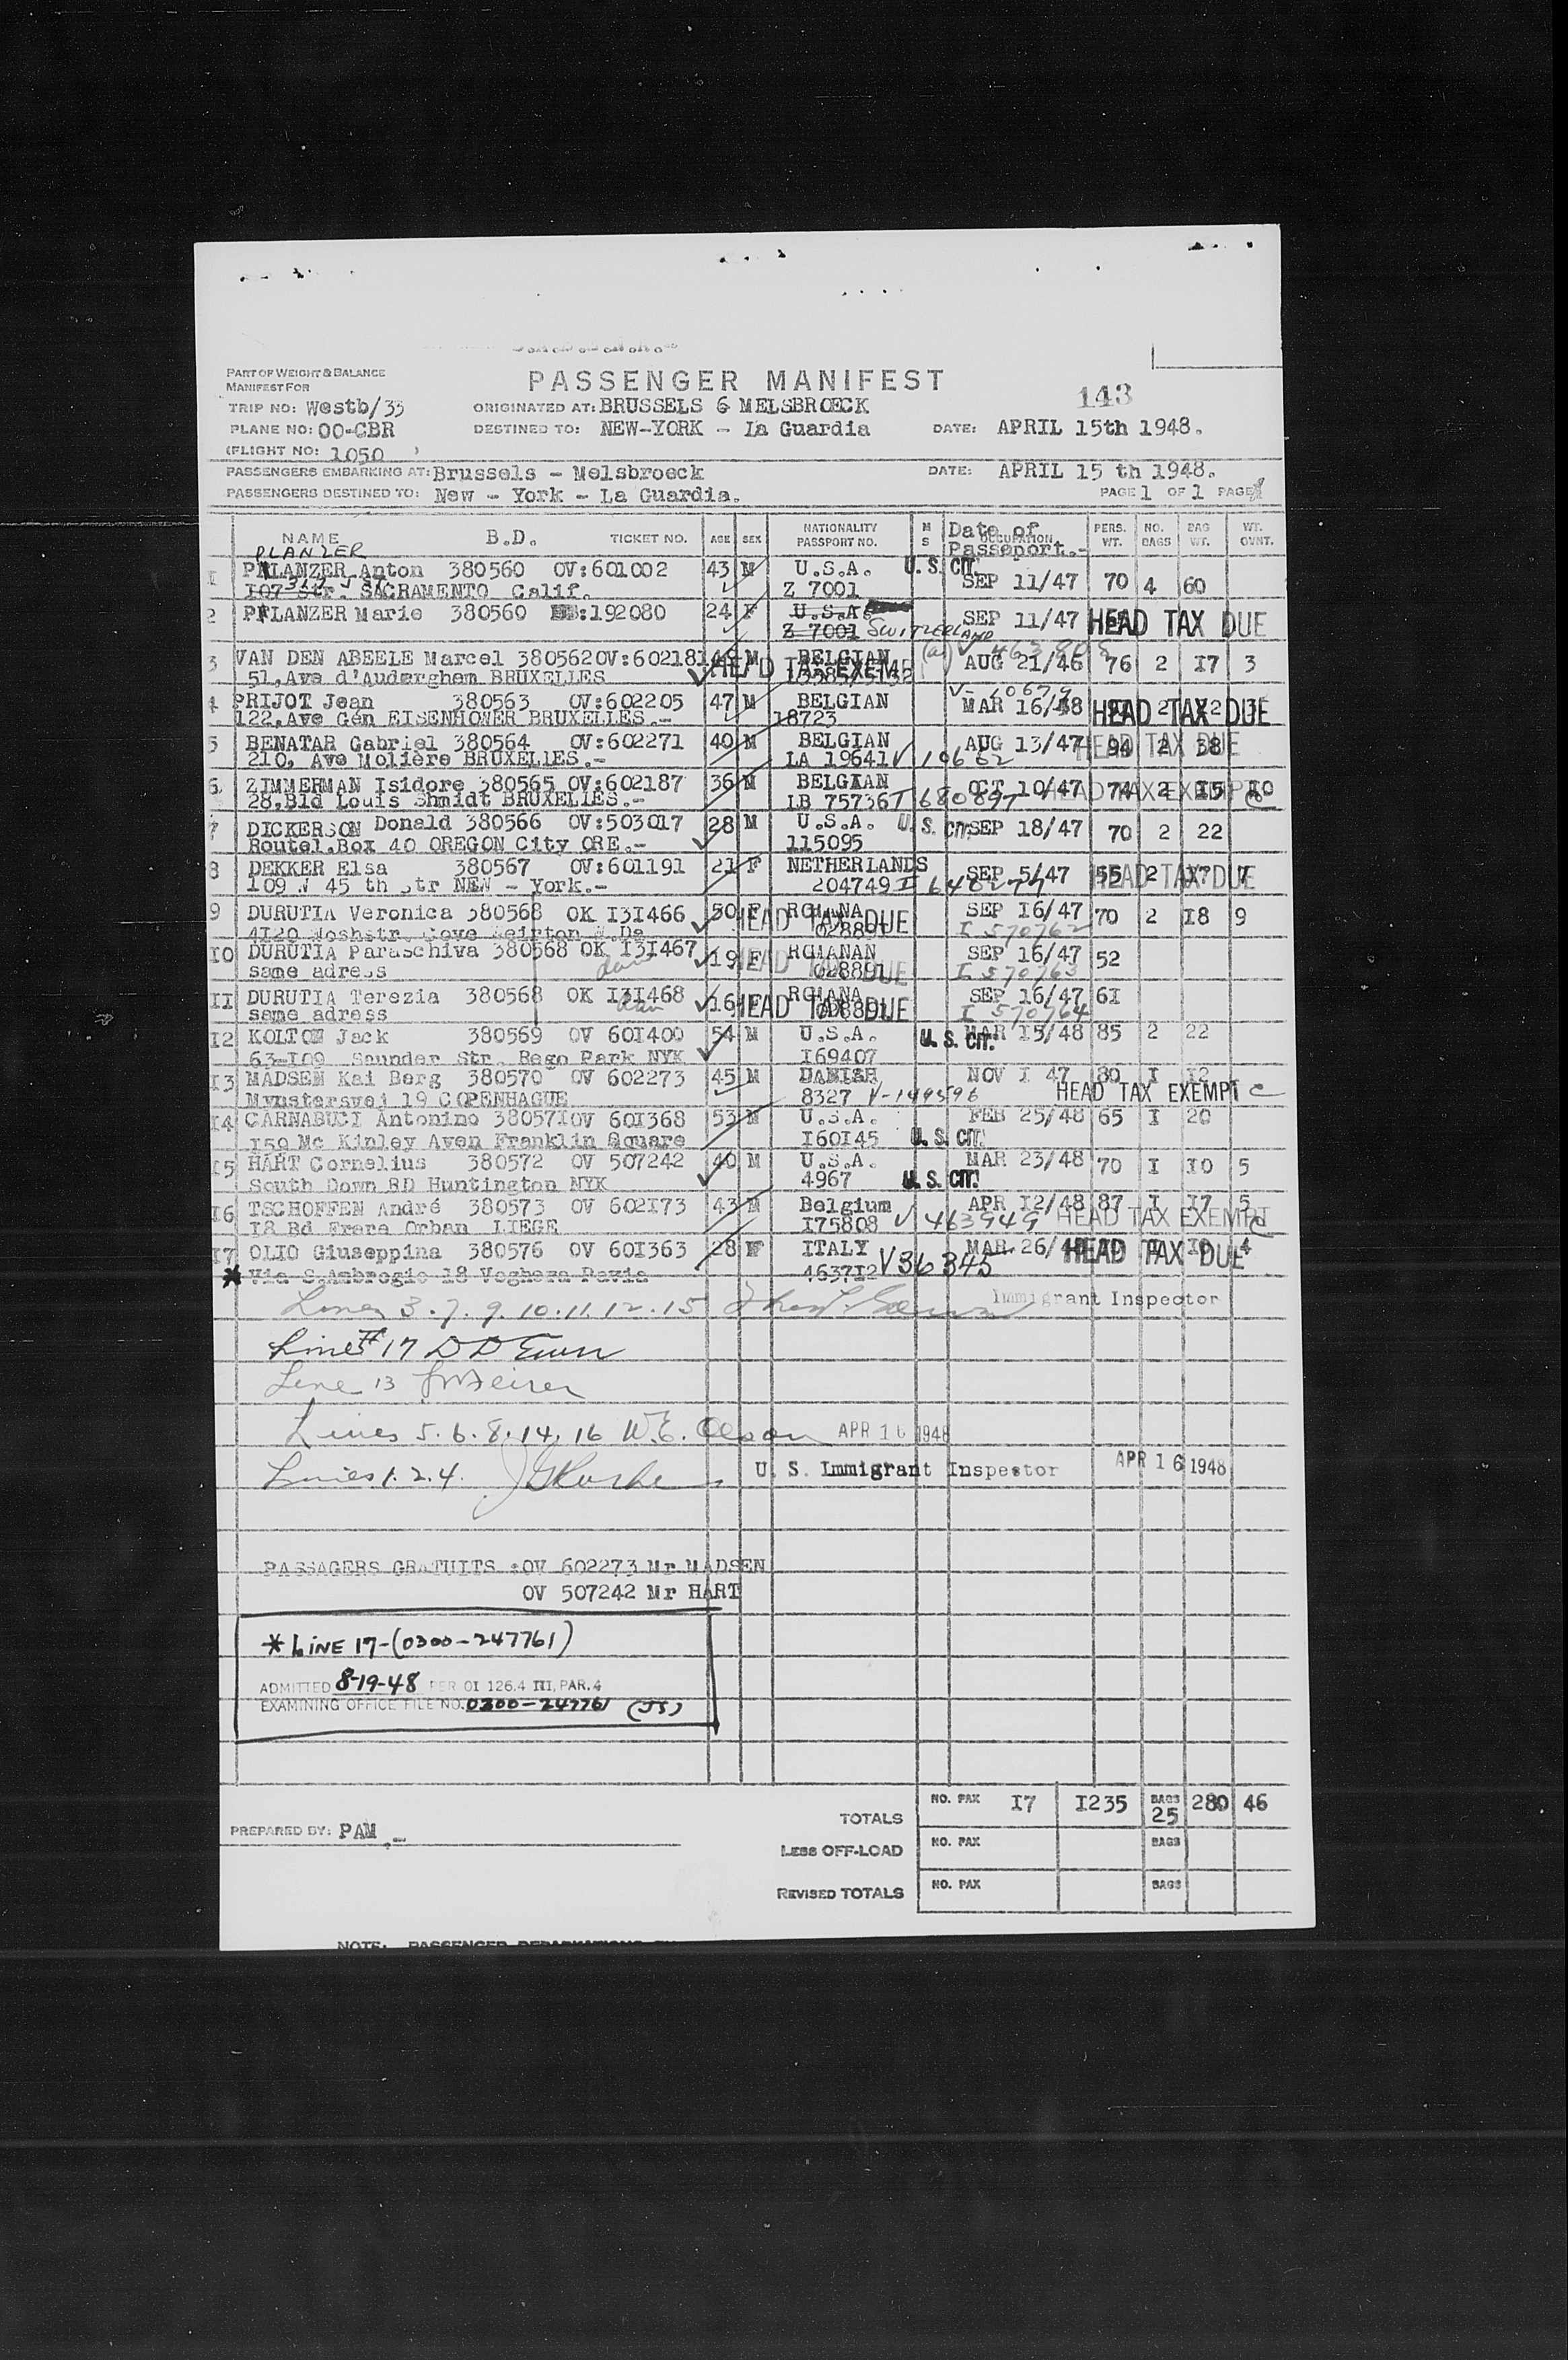 PART OF WEIGHT & BALANCE
MANIFEST FOR
PASSENGER MANIFEST
143
TRIP NO: Westb/35 ORIGINATED AT: BRUSSELS & MELSBROECK
PLANE NO: OO-CBR DESTINED TO: NEW-YORK - La Guardia DATE: APRIL 15th 1948.
(FLIGHT NO: 1050 )
PASSENGERS EMBARKING AT: Brussels - Melsbroeck DATE: APRIL 15 th 1948.
PASSENGERS DESTINED TO: New - York - La Guardia. PAGE 1 OF 1 PAGE
NAME B.D. TICKET NO. AGE SEX NATIONALITY PASSPORT NO. M S Date of Passeport.- OCCUPATION PERS. WT. NO. BAGS BAG WT. WT. OVNT.
PLANZER
1 PFLANZER Anton 380560 OV:601002 43 M U.S.A. U.S. CIT. SEP 11/47 70 4 60
107 Str. SACRAMENTO Calif. Z 7001
2 PFLANZER Marie 380560 :192080 24 F U.S.A. SEP 11/47 HEAD TAX DUE
Z 7001 SWITZERLAND
3 VAN DEN ABEELE Marcel 380562 OV:602181 M BELGIAN (a) V 463808 AUG 21/46 76 2 I7 3
51,Ave d'Auderghem BRUXELLES HEAD TAX EXEMP
4 PRIJOT Jean 380563 OV:602205 47 M BELGIAN MAR 16/48 HEAD TAX DUE
122,Ave Gén EISENHOWER BRUXELLES.- 18723
5 BENATAR Gabriel 380564 OV:602271 40 M BELGIAN AUG 13/47 94 2 38 HEAD TAX DUE
210, Ave Molière BRUXELLES.- LA 19641 V 10662
6 ZIMMERMAN Isidore 380565 OV:602187 36 M BELGIAN OCT 10/47 74 2 I5 IO HEAD TAX EXEMPT C
28,Bld Louis Shmidt BRUXELLES.- LB 75736 I 680897
7 DICKERSON Donald 380566 OV:503017 28 M U.S.A. U.S. CIT. SEP 18/47 70 2 22
Route1.Box 40 OREGON City ORE.- 115095
8 DEKKER Elsa 380567 OV:601191 21 F NETHERLANDS SEP 5/47 55 2 I7 7 HEAD TAX DUE
109 W 45 th str NEW - York.- 204749
9 DURUTIA Veronica 380568 OK I3I466 50 F ROMANA SEP I6/47 70 2 I8 9
HEAD TAX DUE 028891 I 570762
IO DURUTIA Paraschiva 380568 OK I3I467 19 F ROMANAN SEP 16/47 52
same adress HEAD TAX DUE 028891 I 570763
II DURUTIA Terezia 380568 OK I3I468 16 F ROMANA SEP 16/47 6I
same adress HEAD TAX DUE 028891 I 570764
I2 KOLTON Jack 380569 OV 60I400 54 M U.S.A. U.S. CIT. MAR I5/48 85 2 22
63-I09 Saunder Str. Rego Park NYK I69407
I3 MADSEN Kai Berg 380570 OV 602273 45 M DANISH NOV I 47 80 I I2
Mynstersvej 19 COPENHAGUE 8327 V-149596 HEAD TAX EXEMPT C
I4 CARNABUCI Antonino 38057I OV 60I368 53 M U.S.A. FEB 25/48 65 I 20
I59 Mc Kinley Aven Franklin Square I60I45 U.S. CIT.
I5 HART Cornelius 380572 OV 507242 40 M U.S.A. MAR 23/48 70 I I0 5
South Down RD Huntington NYK 4967 U.S. CIT.
I6 TSCHOFFEN André 380573 OV 602I73 43 M Belgium APR I2/48 87 I I7 5
I8 Bd Frere Orban LIEGE I75808 V 463949 HEAD TAX EXEMPT C
I7 OLIO Giuseppina 380576 OV 60I363 28 F ITALY MAR 26/48 HEAD TAX DUE 4
* Via S.Ambrogio 18 Voghera Pavia 4637I2 V36345
Lines 3.7.9.10.11.12.15 Immigrant Inspector
Line # 17
Line 13
Lines 5.6.8.14.16 W.E. Olson APR 16 1948
Lines 1.2.4. U. S. Immigrant Inspector APR 16 1948
PASSAGERS GRATUITS :OV 602273 Mr MADSEN
OV 507242 Mr HART
* LINE 17-(0300-247761)
ADMITTED 8-19-48 PER OI 126.4 III, PAR.4
EXAMINING OFFICE FILE NO. 0300-247761 (JS)
TOTALS NO. PAX I7 I235 BAGS 25 280 46
PREPARED BY: PAM.-
LESS OFF-LOAD NO. PAX BAGS
REVISED TOTALS NO. PAX BAGS
NOTE: PASSENGER